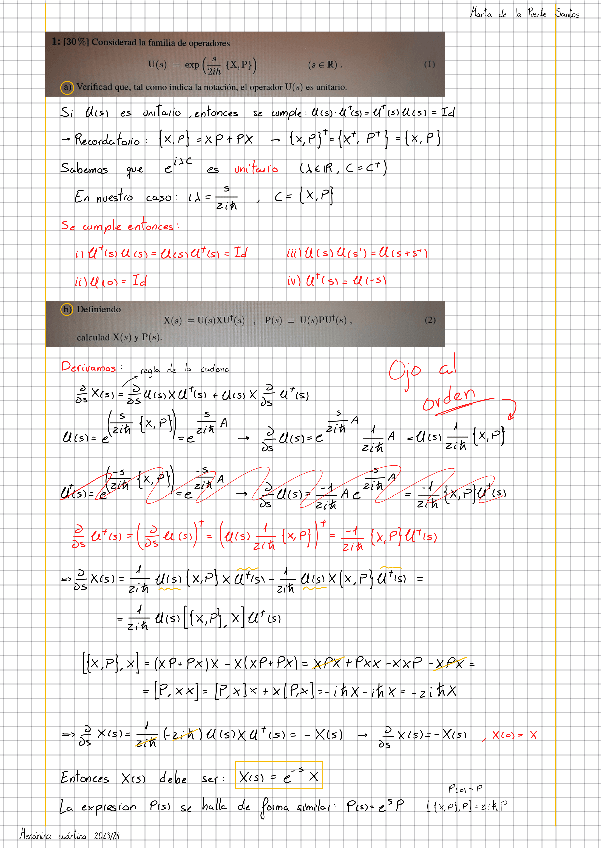 Marta de la Puente Santos
1: [30%] Considerad la familia de operadores
U(s) = exp(s/2iħ {X, P}) (s ∈ ℝ). (1)
a) Verificad que, tal como indica la notación, el operador U(s) es unitario.
Si U(s) es unitario, entonces se cumple U(s)·U†(s)=U†(s)U(s) = Id
→ Recordatorio: {X,P} = XP+PX → {X,P}†={X†, P†} = {X,P}
Sabemos que e^{iλC} es unitario (λ∈ℝ, C=C†)
En nuestro caso: iλ = s/2iħ , C = {X,P}
Se cumple entonces:
i) U†(s)U(s) = U(s)U†(s) = Id iii) U(s)U(s') = U(s+s')
ii) U(0) = Id iv) U†(s) = U(-s)
b) Definiendo
X(s) = U(s)XU†(s) ; P(s) = U(s)PU†(s), (2)
calculad X(s) y P(s).
Derivamos: regla de la cadena
Ojo al
orden
∂/∂s X(s) = ∂/∂s U(s) X U†(s) + U(s) X ∂/∂s U†(s)
U(s) = e^(-s/2iħ {X,P}) = e^{s/2iħ A} → ∂/∂s U(s) = e^{s/2iħ A} 1/2iħ A = U(s) 1/2iħ {X,P}
U†(s) = e^(-s/2iħ {X,P}) = e^{-s/2iħ A} → ∂/∂s U(s) = -1/2iħ A e^{-s/2iħ A} = -1/2iħ {X,P}U†(s)
∂/∂s U†(s) = (∂/∂s U(s))† = (U(s) 1/2iħ {X,P})† = -1/2iħ {X,P}U†(s)
⇒ ∂/∂s X(s) = 1/2iħ U(s) {X,P} X U†(s) - 1/2iħ U(s) X {X,P} U†(s) =
= 1/2iħ U(s) [{X,P}, X] U†(s)
[{X,P}, X] = (XP+PX)X - X(XP+PX) = XPX + PXX - XXP - XPX =
= [P, XX] = [P,X]X + X[P,X] = -iħX - iħX = -2iħX
⇒ ∂/∂s X(s) = 1/2iħ (-2iħ) U(s) X U†(s) = - X(s) → ∂/∂s X(s) = -X(s) , X(0) = X
Entonces X(s) debe ser: X(s) = e^{-s} X
P(0) = P
La expresion P(s) se halla de forma similar: P(s) = e^s P [{X,P},P] = 2iħP
Mecánica cuántica 2023/24